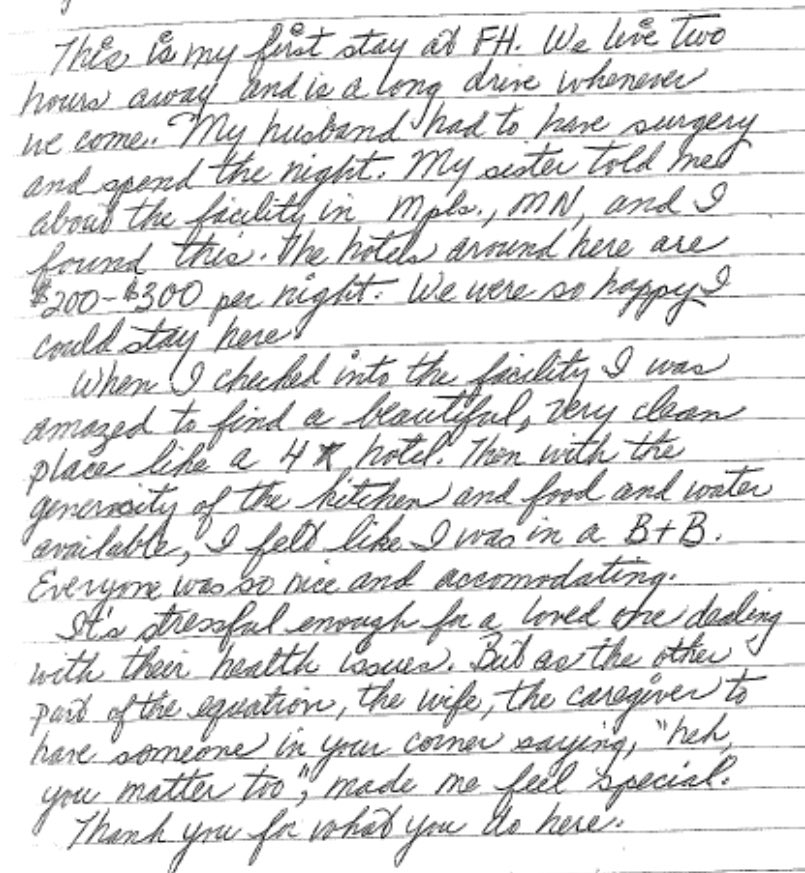 This is my first stay at FH. We live two
hours away and is a long drive whenever
we come. My husband had to have surgery
and spend the night. My sister told me
about the facility in Mpls., MN, and I
found this. The hotels around here are
$200-$300 per night. We were so happy I
could stay here.
When I checked into the facility I was
amazed to find a beautiful, very clean
place like a 4★ hotel. Then with the
generosity of the kitchen and food and water
available, I felt like I was in a B+B.
Everyone was so nice and accomodating.
It's stressful enough for a loved one dealing
with their health issues. But as the other
part of the equation, the wife, the caregiver to
have someone in your corner saying, "heh,
you matter too", made me feel special.
Thank you for what you do here.